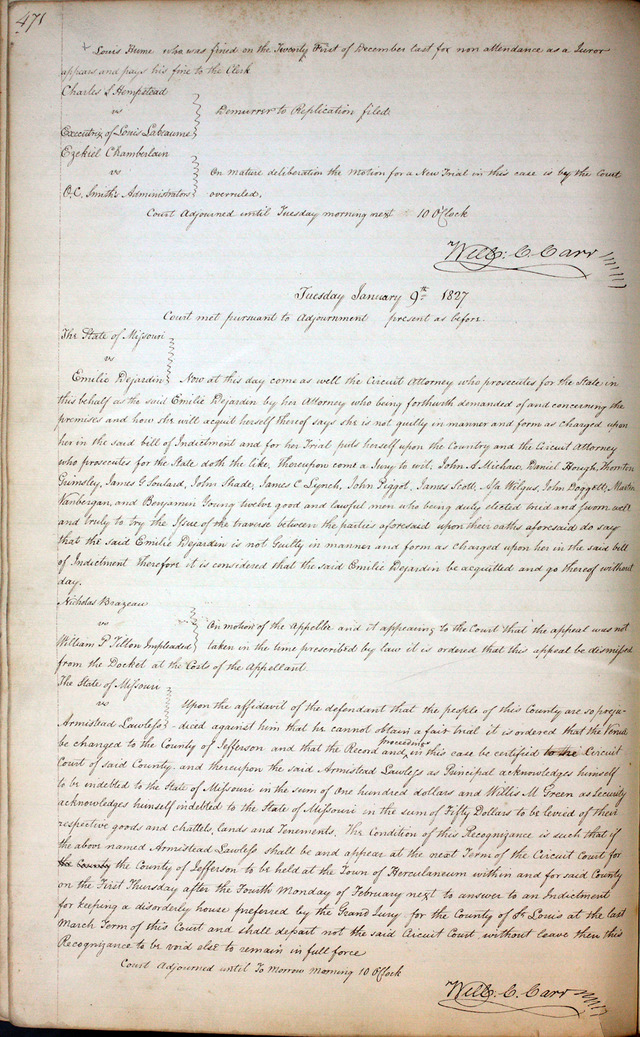 471
Louis Hume who was fined on the Twenty First of December last for non attendance as a Juror
appears and pays his fine to the Clerk
Charles S Hempstead
vs
Demurrer to Replication filed
Executrix of Louis Labeaume
Ezekiel Chamberlain
vs
On mature deliberation the Motion for a New Trial in this case is by the Court
O.C. Smith's Administrators overruled.
Court Adjourned until Tuesday morning next 10 O'Clock
Will: C. Carr
Tuesday January 9th 1827
Court met pursuant to Adjournment present as before.
The State of Missouri
vs
Emilie Dejardin Now at this day come as well the Circuit Attorney who prosecutes for the State in
this behalf as the said Emilie Dejardin by her Attorney who being forthwith demanded of and concerning the
premises and how she will acquit herself thereof says she is not guilty in manner and form as charged upon
her in the said bill of Indictment and for her Trial puts herself upon the Country and the Circuit Attorney
who prosecutes for the State doth the like, thereupon come a Jury to wit, John A Michaw, Daniel Hough, Thornton
Grimsley, James G Soulard, John Shade, James C Lynch, John Piggot, James Scott, Asa Wilgus, John Doggett, Martin
Vanbergan, and Benjamin Young twelve good and lawful men who being duly elected tried and sworn well
and truly to try the Issue of the traverse between the parties aforesaid upon their oaths aforesaid do say
that the said Emilie Dejardin is not Guilty in manner and form as charged upon her in the said bill
of Indictment therefore it is considered that the said Emilie Dejardin be acquitted and go thereof without
day.
Nicholas Brazeau
vs
On motion of the Appellee and it appearing to the Court that the appeal was not
William P Tillon Impleaded taken in the time prescribed by law it is ordered that this appeal be dismissed
from the Docket at the Costs of the Appellant
The State of Missouri
vs
Upon the affidavit of the defendant that the people of this County are so preju-
Armistead Lawless - diced against him that he cannot obtain a fair trial it is ordered that the Venue
be changed to the County of Jefferson and that the Record and proceedings in this case be certified to the Circuit
Court of said County. and thereupon the said Armistead Lawless as Principal acknowledges himself
to be indebted to the State of Missouri in the sum of one hundred dollars and Willis M Green as Security
acknowledges himself indebted to the State of Missouri in the sum of Fifty Dollars to be levied of their
respective goods and chattels, lands and Tenements. The Condition of this Recognizance is such that if
the above named Armistead Lawless shall be and appear at the next Term of the Circuit Court for
the County the County of Jefferson to be held at the Town of Herculaneum within and for said County
on the First Thursday after the Fourth Monday of February next to answer to an Indictment
for keeping a disorderly house preferred by the Grand Jury for the County of St Louis at the last
March Term of this Court and shall depart not the said Circuit Court without leave then this
Recognizance to be void else to remain in full force
Court Adjourned until To Morrow Morning 10 O'Clock
Will: C. Carr